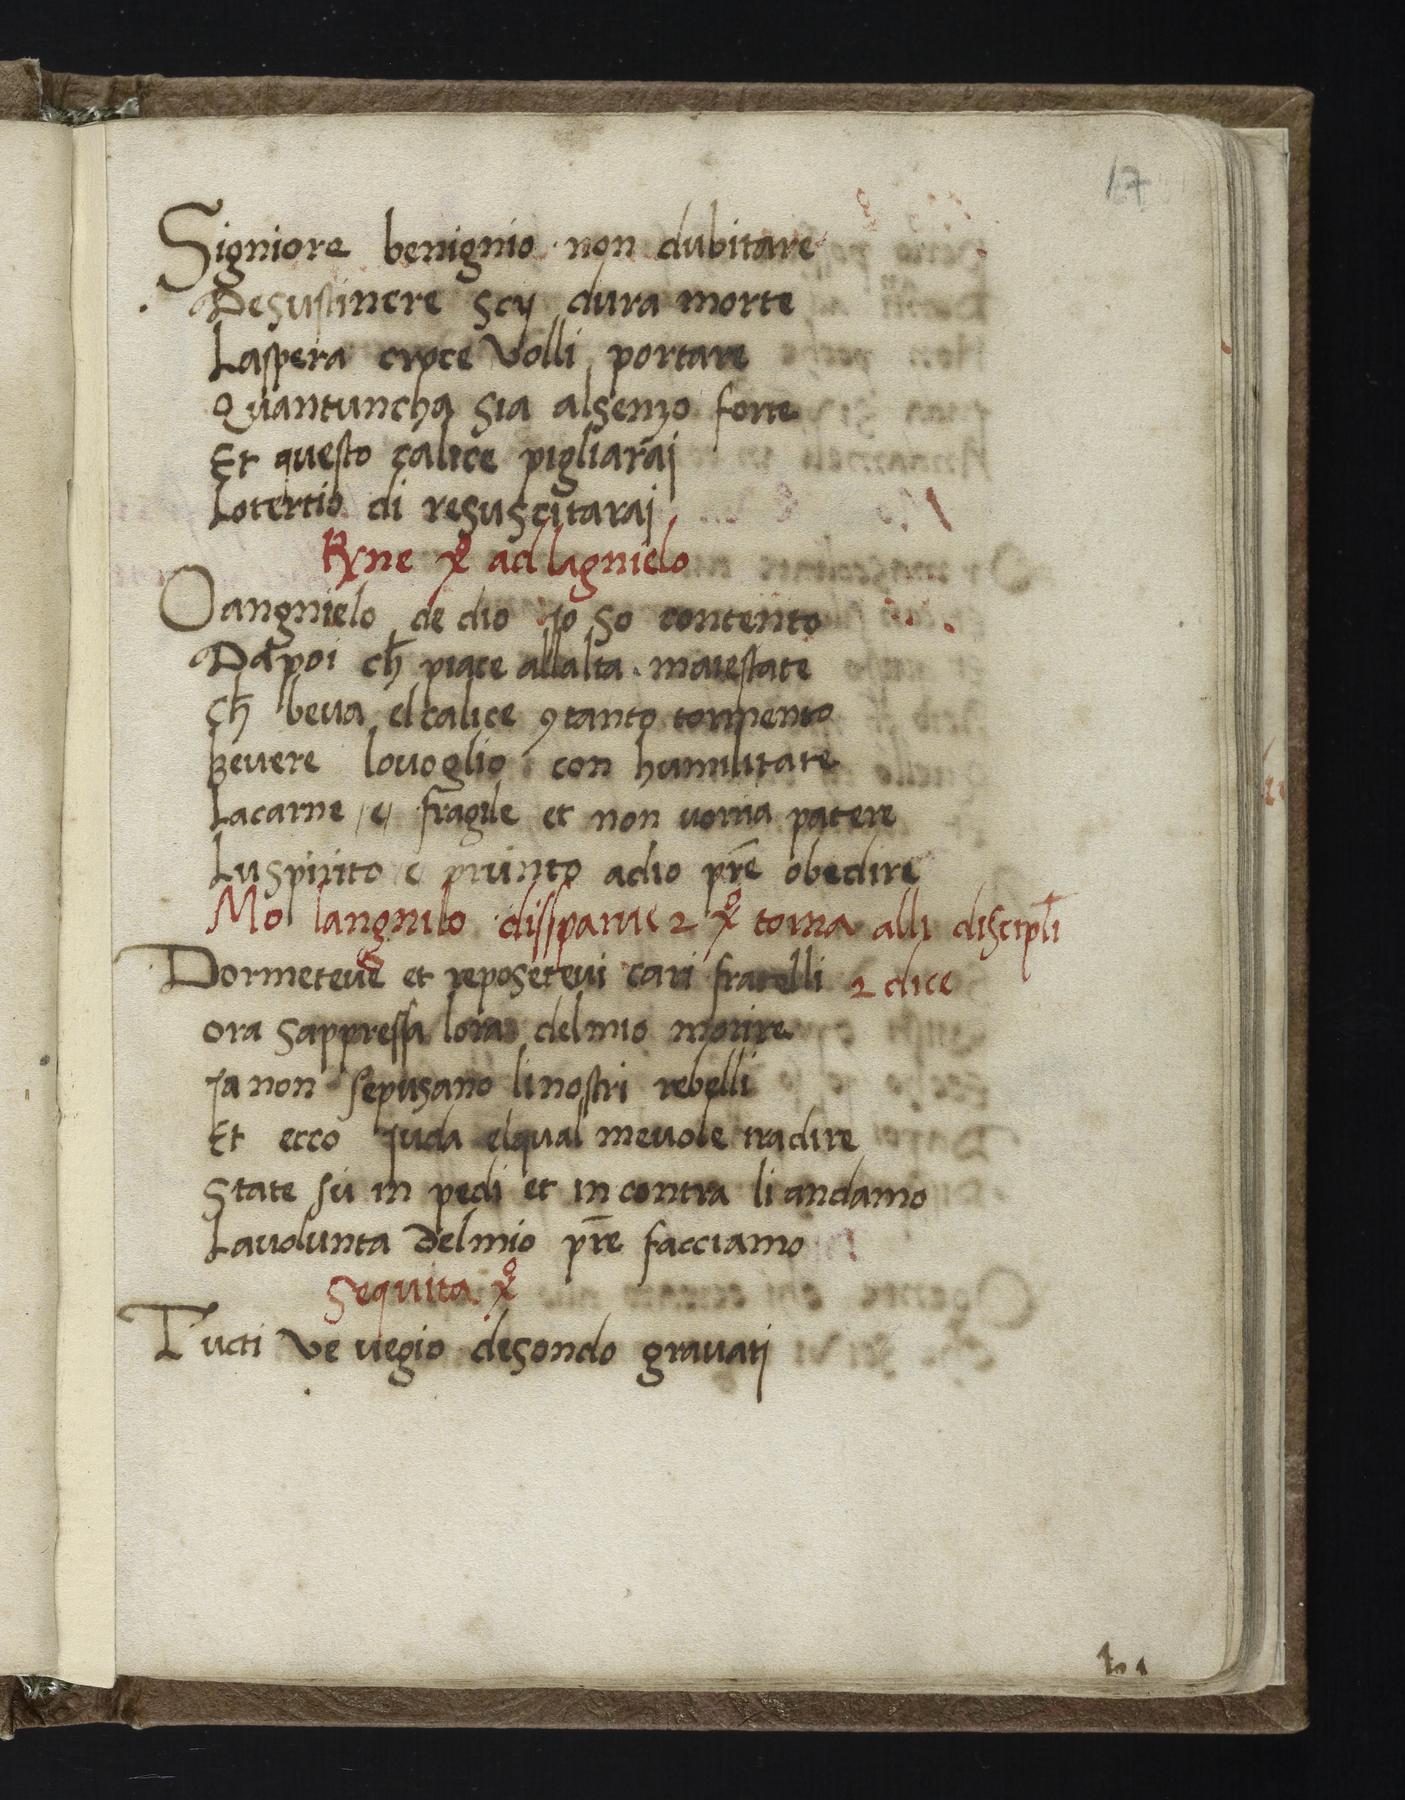 17
Signiore benignio non dubitare
Desustinere scij dura morte
Laspera croce volli portare
Quantuncha sia alsenzo forte
Et questo calice pigliaraj
Lotertio di resuscitaraj
Ry̅ne xo̅ ad lagnielo
Oangnielo de dio Jo so contento
Dapoi ch̅ piace allalta maiestate
ch̅ beva elcalice ꝯtanto tormento
Bevere lovoglio con humilitate
Lacarne /e/ fragile et non vorria patere
Luspirito e prunto adio pr̅e obedire
Mo langnilo dissparue ⁊ xo̅ torna alli discipl̅i
Dormeteve et reposetevi cari fratelli ⁊ dice
ora sappressa lora delmio morire
Ja non sepusano linostri rebelli
Et ecco Juda elqual mevole tradire
State su in pedi et incontra li andamo
Lavolunta delmio pr̅e facciamo
Sequita xo̅
Tucti ve vegio desondo gravatj